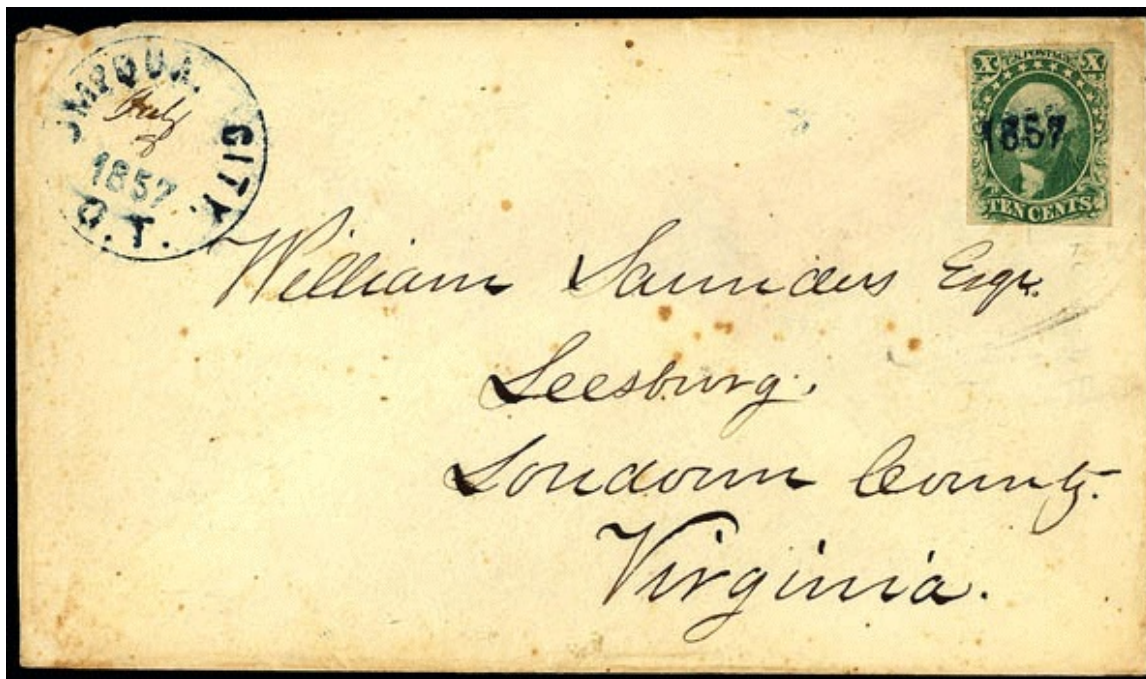 UMPQUA. CITY
July
8
1857
O.T.
X U.S. POSTAGE X
1857
TEN CENTS.
William Saunders Esqr.
Leesburg.
Loudoun County.
Virginia.